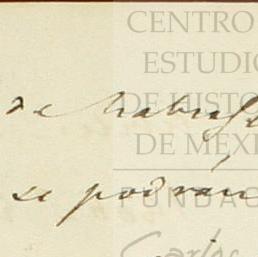 CENTRO
ESTUDIO
DE HISTO
de
DE MÉXI
se podrán
FUNDAC
Carlos